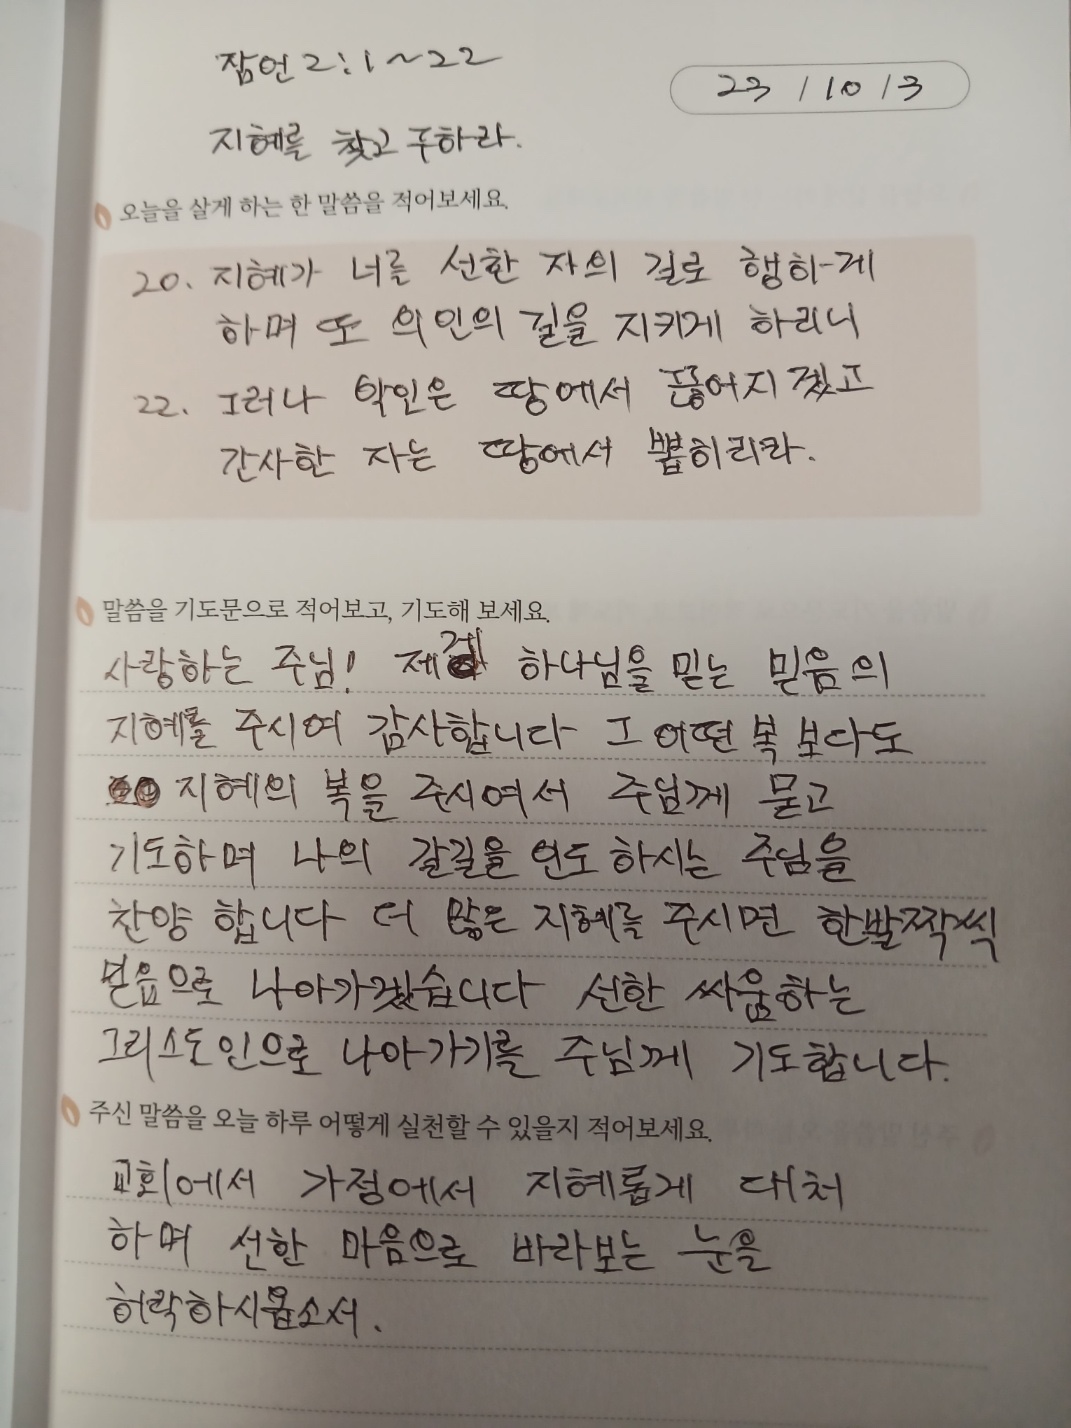 잠언 2:1~22
23/10/3
지혜를 찾고 구하라.
오늘을 살게 하는 한 말씀을 적어보세요.
20. 지혜가 너를 선한 자의 길로 행하게
하며 또 의인의 길을 지키게 하리니
22. 그러나 악인은 땅에서 끊어지겠고
간사한 자는 땅에서 뽑히리라.
말씀을 기도문으로 적어보고, 기도해 보세요.
사랑하는 주님! 제게 하나님을 믿는 믿음의
지혜를 주시여 감사합니다 그 어떤 복 보다도
지혜의 복을 주시여서 주님께 묻고
기도하며 나의 갈길을 인도 하시는 주님을
찬양 합니다 더 많은 지혜를 주시면 한발짝씩
믿음으로 나아가겠습니다 선한 싸움하는
그리스도인으로 나아가기를 주님께 기도합니다.
주신 말씀을 오늘 하루 어떻게 실천할 수 있을지 적어보세요.
교회에서 가정에서 지혜롭게 대처
하며 선한 마음으로 바라보는 눈을
허락하시옵소서.